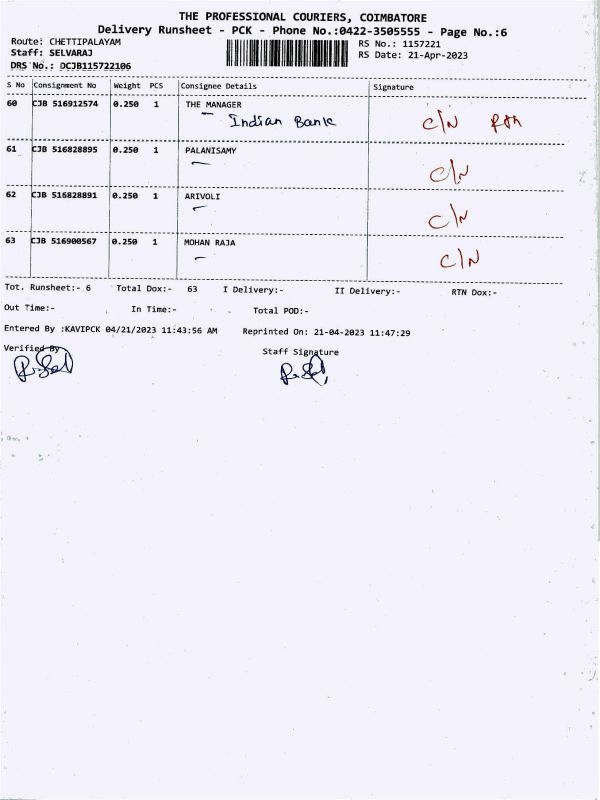 THE PROFESSIONAL COURIERS, COIMBATORE
Delivery Runsheet - PCK - Phone No.:0422-3505555 - Page No.:6
Route: CHETTIPALAYAM
Staff: SELVARAJ
DRS No.: DCJB115722106
RS No.: 1157221
RS Date: 21-Apr-2023
S No Consignment No Weight PCS Consignee Details Signature
60 CJB 516912574 0.250 1 THE MANAGER
Indian Bank C/N
61 CJB 516828895 0.250 1 PALANISAMY
C/N
62 CJB 516828891 0.250 1 ARIVOLI
C/N
63 CJB 516900567 0.250 1 MOHAN RAJA
C/N
Tot. Runsheet:- 6 Total Dox:- 63 I Delivery:- II Delivery:- RTN Dox:-
Out Time:- In Time:- Total POD:-
Entered By :KAVIPCK 04/21/2023 11:43:56 AM Reprinted On: 21-04-2023 11:47:29
Verified By Staff Signature